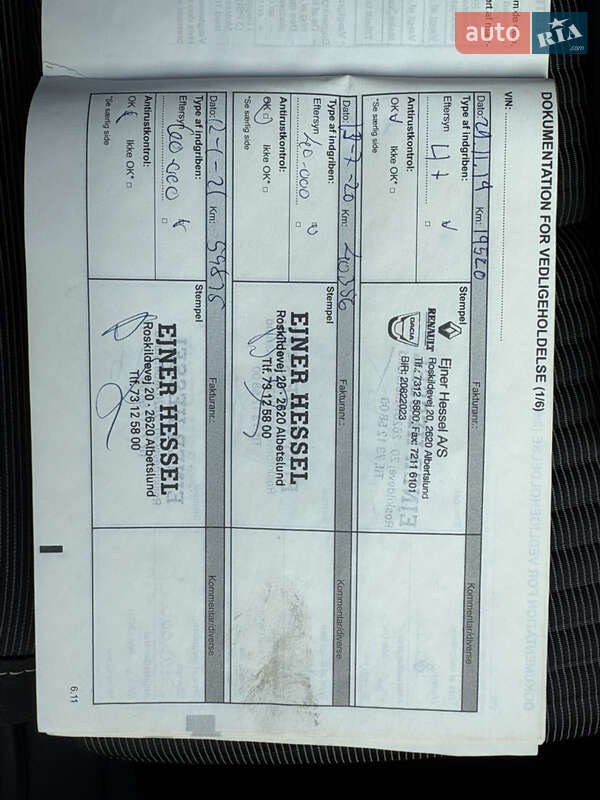 auto RIA.com
DOKUMENTATION FOR VEDLIGEHOLDELSE (1/6)
VIN:
Dato: 20.11.19 Km: 19520 Fakturanr.: Kommentar/diverse
Type af indgriben: Stempel
Eftersyn
Antirustkontrol:
OK Ikke OK* □
*Se særlig side
RENAULT
DACIA
Ejner Hessel A/S
Roskildevej 20, 2620 Albertslund
Tlf. 7312 5800, Fax: 7211 6101
BIR: 20822023
Dato: 13-7-20 Km: 40386 Fakturanr.: Kommentar/diverse
Type af indgriben: Stempel
Eftersyn 40.000
Antirustkontrol:
OK Ikke OK* □
*Se særlig side
EJNER HESSEL
Roskildevej 20 · 2620 Albetslund
Tlf. 73 12 58 00
Dato: 12-1-21 Km: 59876 Fakturanr.: Kommentar/diverse
Type af indgriben: Stempel
Eftersyn 60.000
Antirustkontrol:
OK Ikke OK* □
*Se særlig side
EJNER HESSEL
Roskildevej 20 · 2620 Albetslund
Tlf. 73 12 58 00
6.11